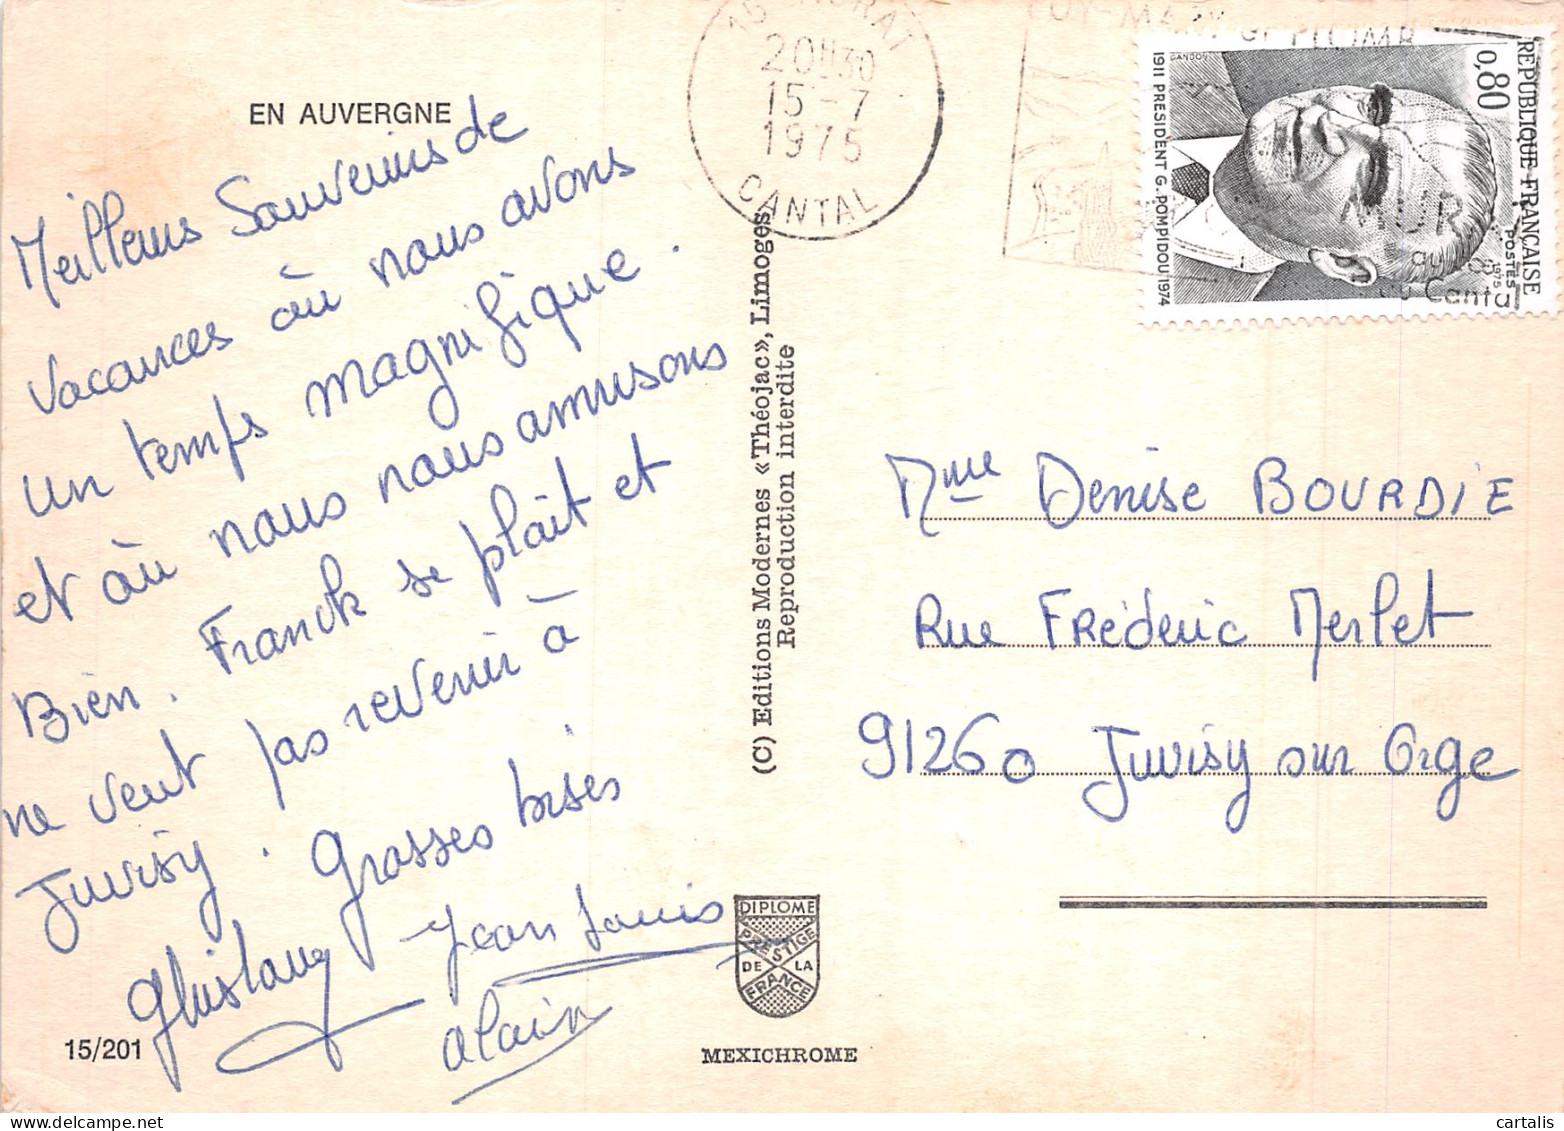 EN AUVERGNE
Meilleurs Souvenirs de
vacances où nous avons
un temps magnifique.
et où nous nous amusons
Bien. Franck se plaît et
ne veut pas revenir à
Juvisy. Grosses bises
Ghislaine Jean Louis
Alain
15/201
(C) Editions Modernes «Théojac», Limoges
Reproduction interdite
DIPLOME
PRESTIGE
DE LA
FRANCE
MEXICHROME
20H30
15-7
1975
CANTAL
REPUBLIQUE FRANÇAISE
0,80
POSTES
1975
GANDON
1911 PRESIDENT G. POMPIDOU 1974
du Cantal
Mme Denise BOURDIE
Rue Fréderic Merlet
91260 Juvisy sur Orge